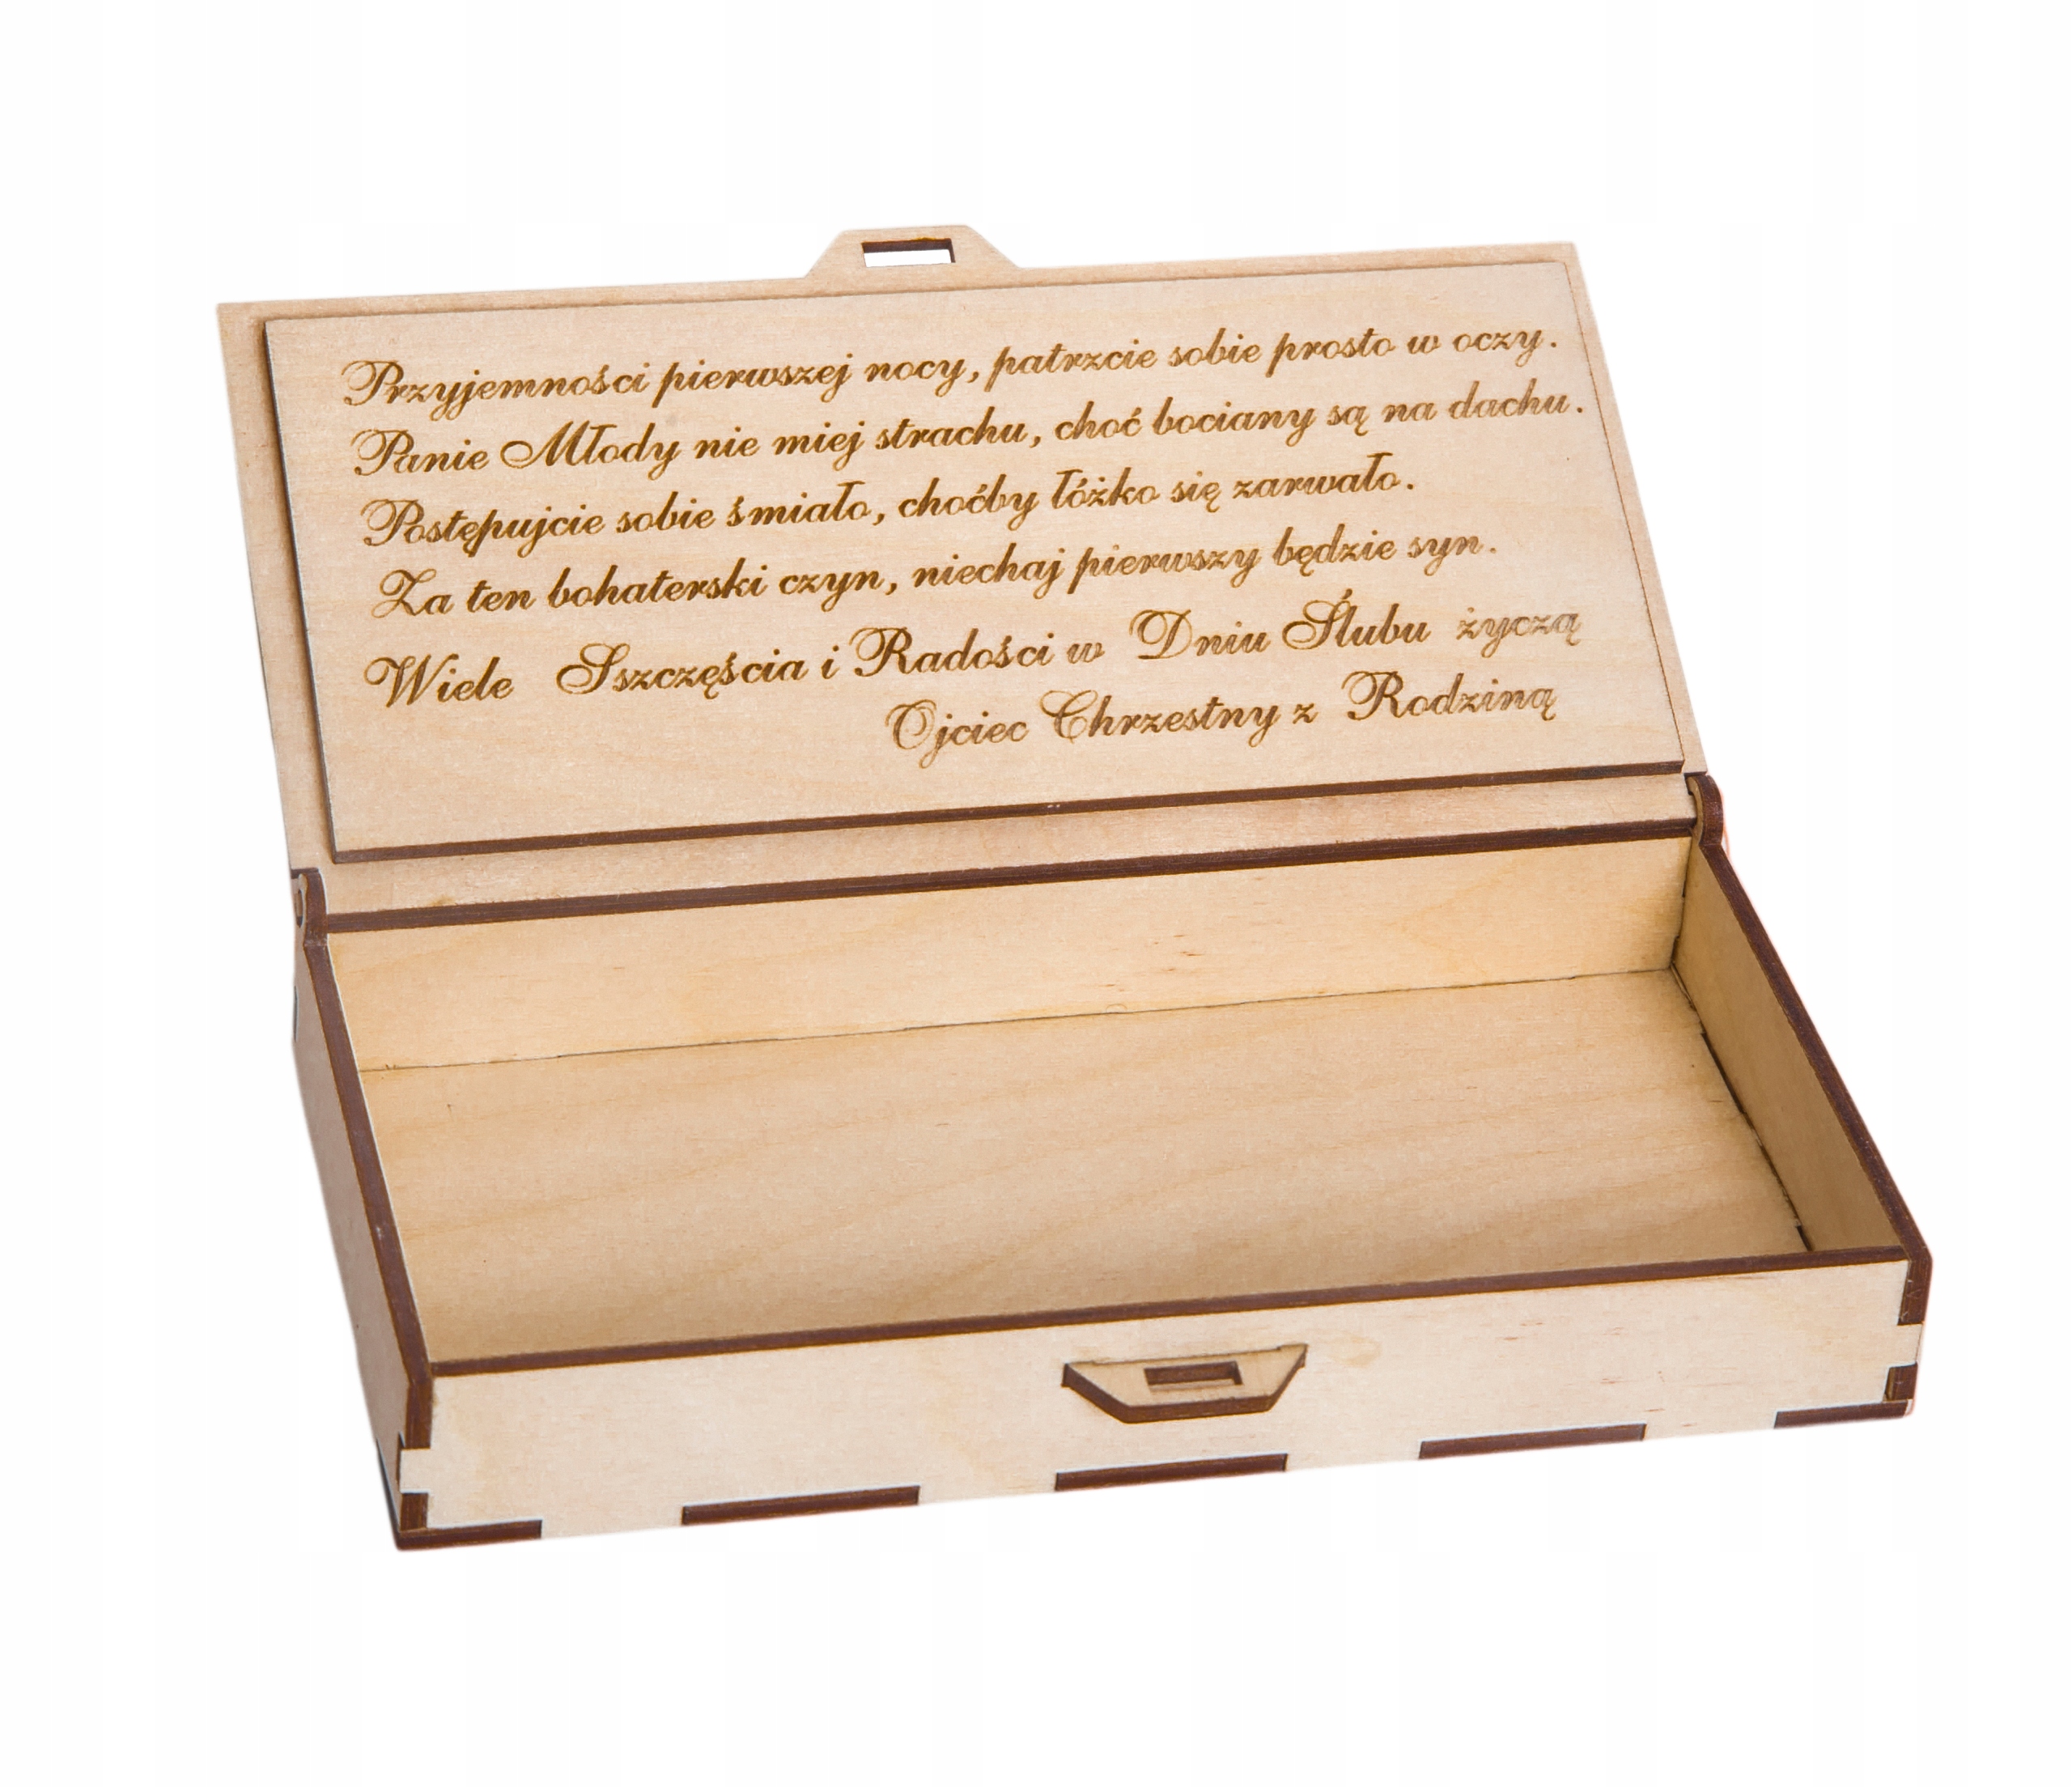 Przyjemności pierwszej nocy, patrzcie sobie prosto w oczy.
Panie Młody nie miej strachu, choć bociany są na dachu.
Postępujcie sobie śmiało, choćby łóżko się zarwało.
Za ten bohaterski czyn, niechaj pierwszy będzie syn.
Wiele Sszczęścia i Radości w Dniu Ślubu życzą
Ojciec Chrzestny z Rodziną